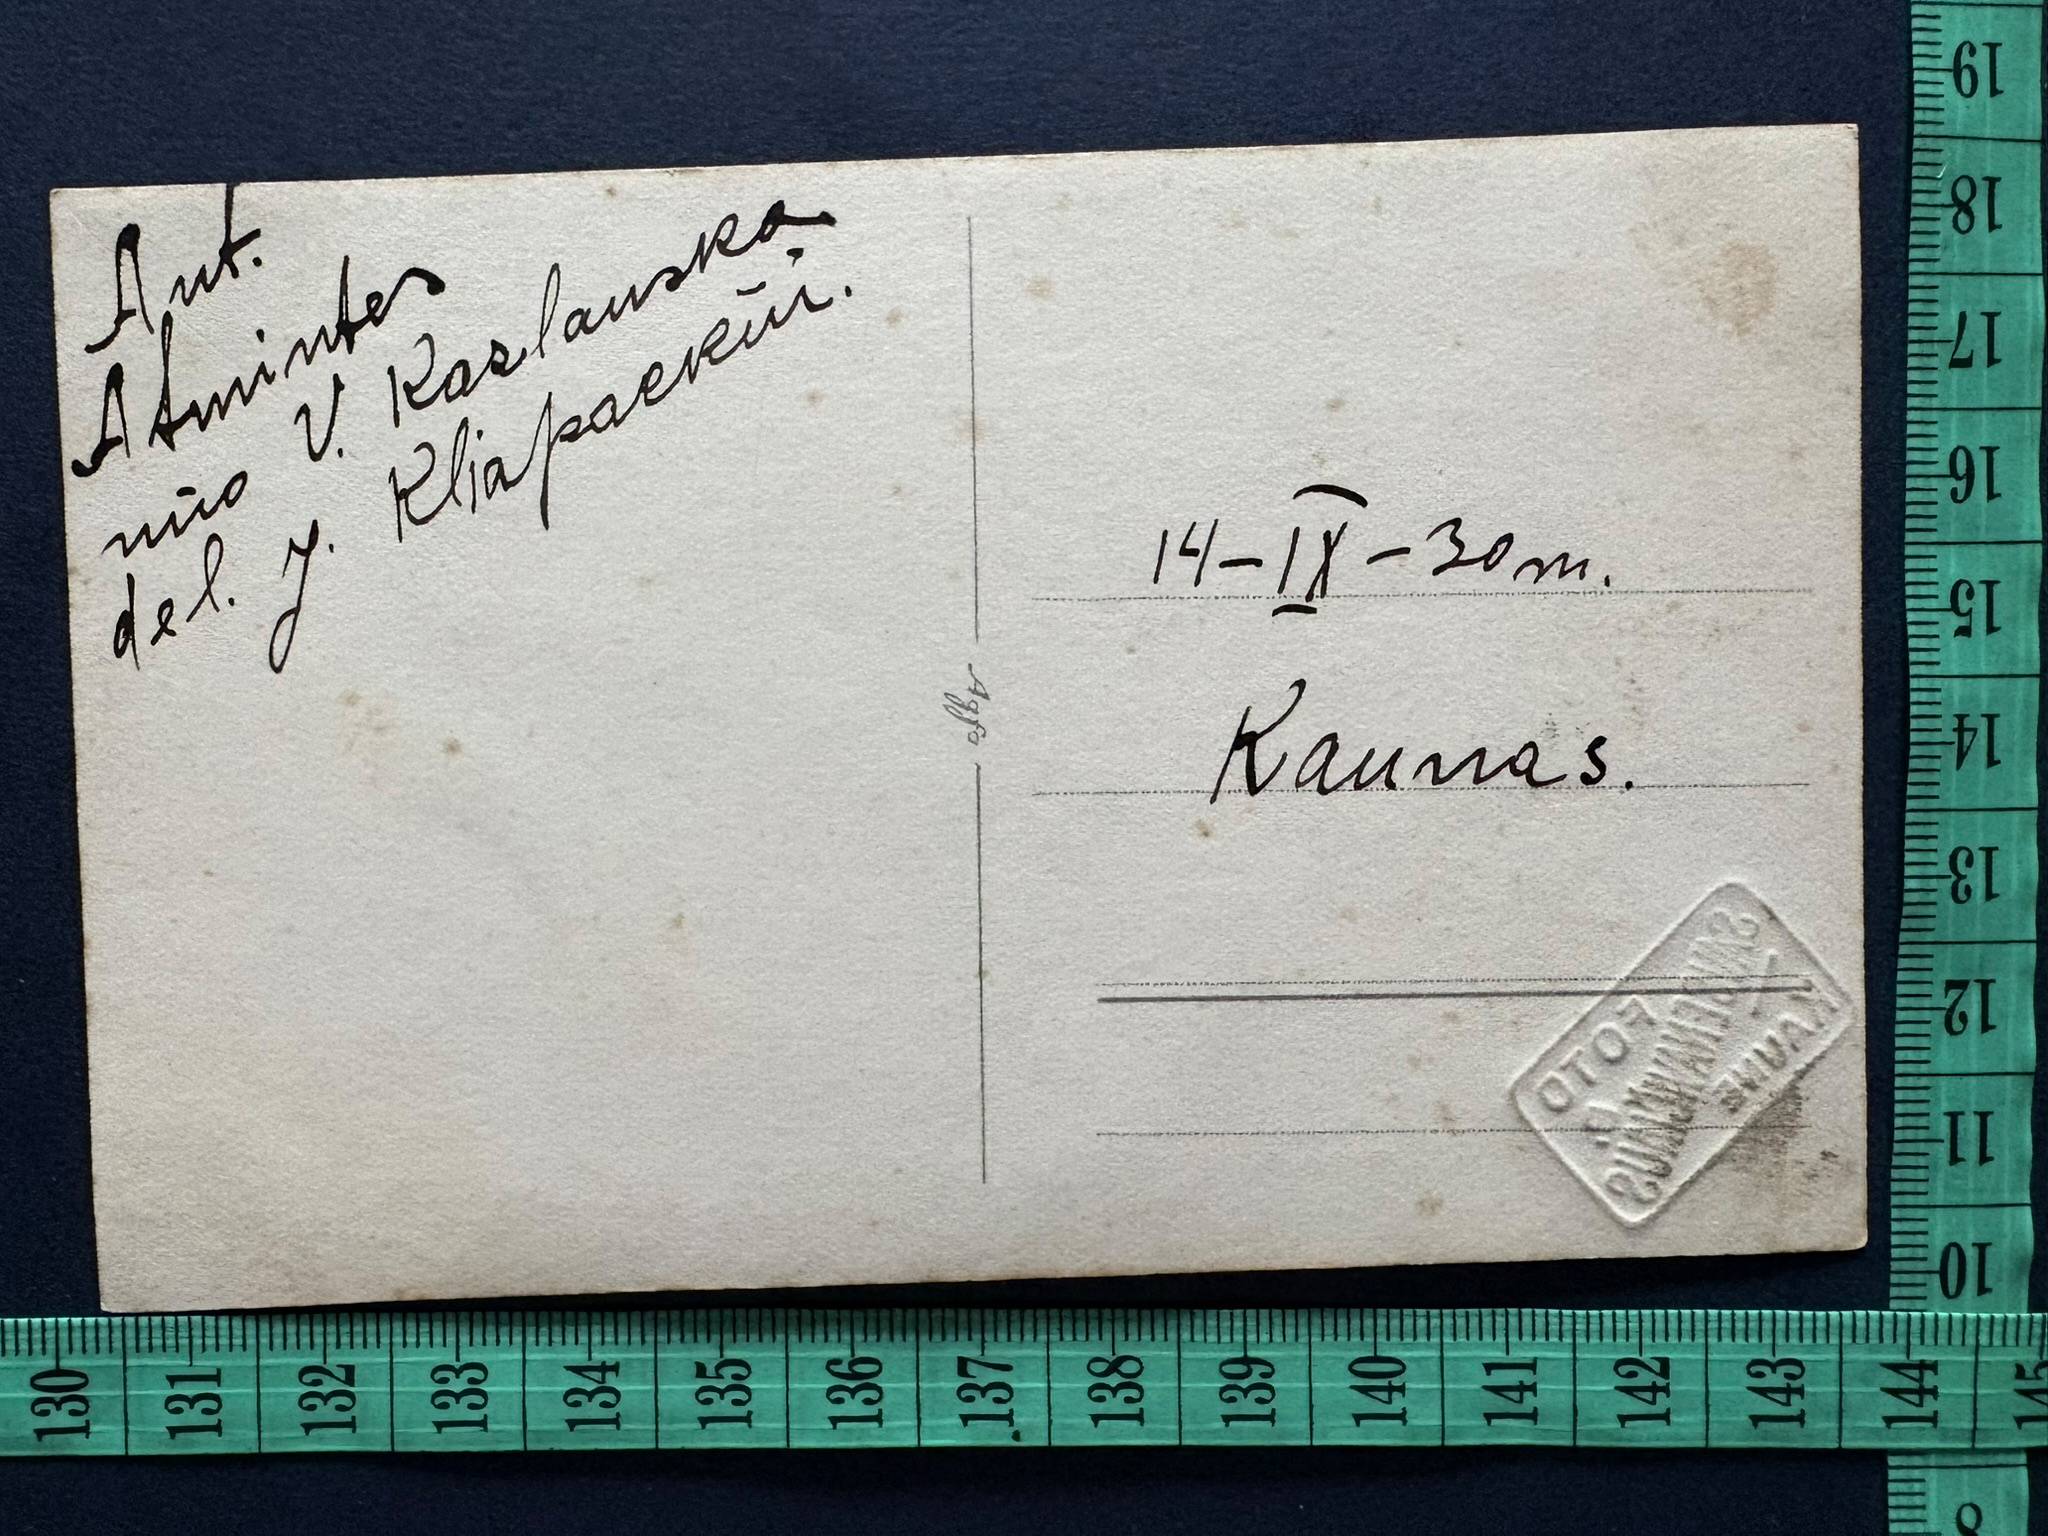 Ant.
Atmintes
nuo V. Kazlauska
del. J. Kliapackūi.
14-IX-30m.
Kaunas.
Agfa
FOTO
KAUNE
19
18
17
16
15
14
13
12
11
10
130 131 132 133 134 135 136 137 138 139 140 141 142 143 144 145